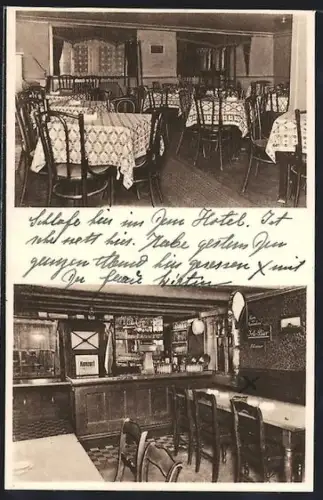 Schlafe hier in dem Hotel. Ist
sehr nett hier. Habe gestern den
ganzen Abend hier gesessen X mit
der Frau Wirtin
Konzert